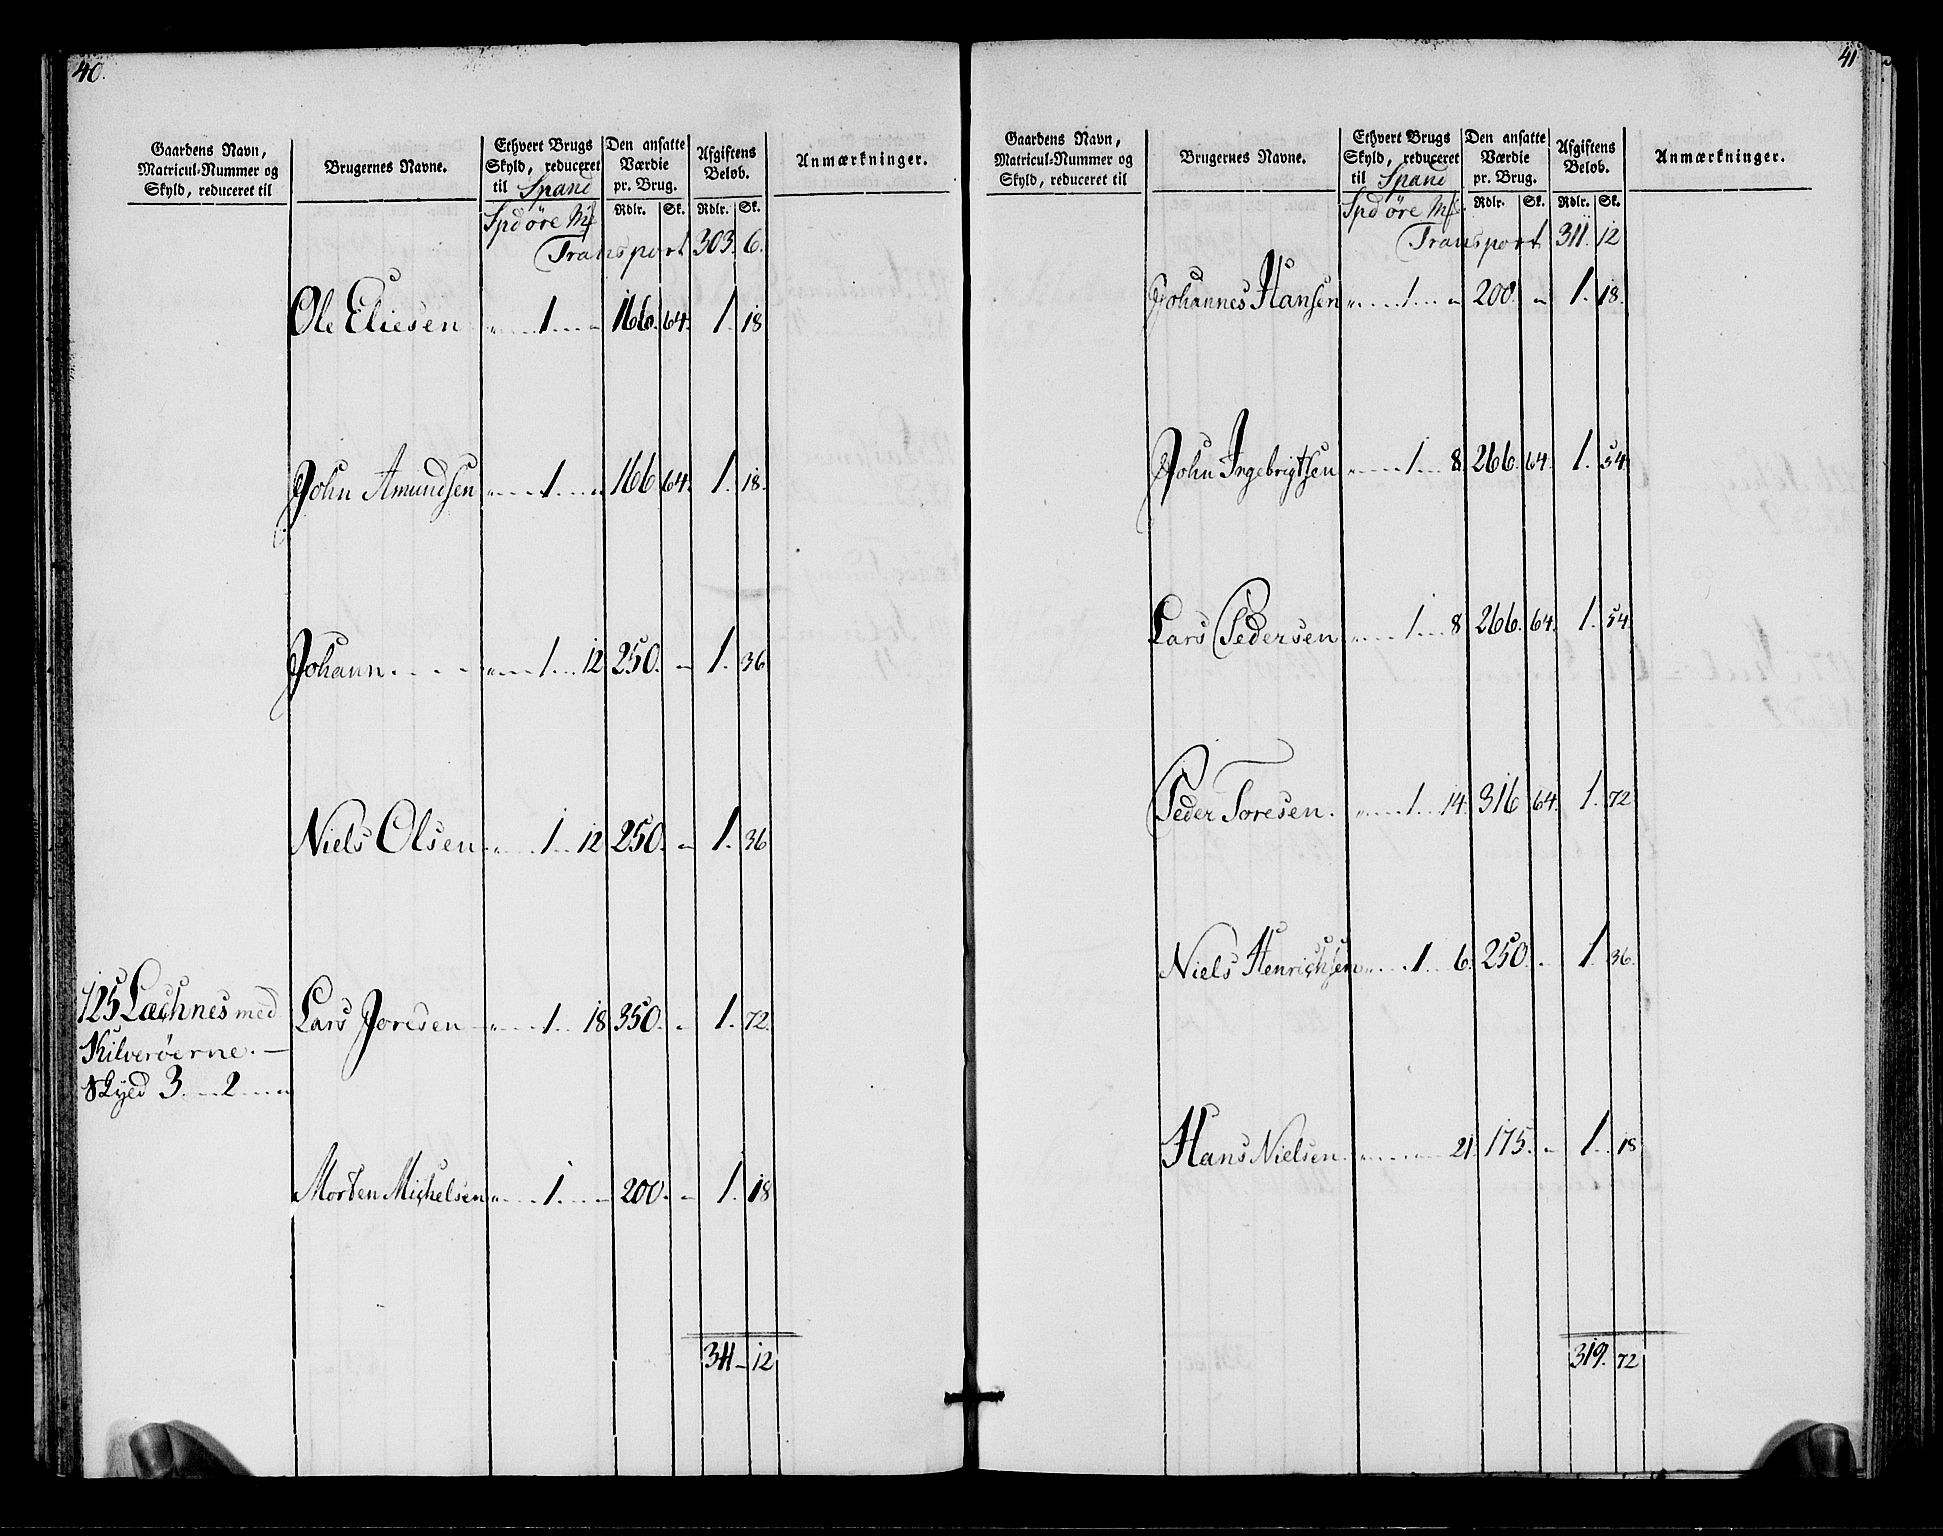 40.
Gaardens Navn, Matricul-Nummer og Skyld, reduceret til
Brugernes Navne.
Ethvert Brugs Skyld, reduceret til Spand
Den ansatte Værdie pr. Brug.
Afgiftens Beløb.
Anmærkninger.
Spd öre Mk Rdlr. Sk. Rdlr. Sk.
Transport 303. 6.
Ole Eliesen „ 1 „ 166. 64. 1. 18
John Amundsen „ 1 „ 166 64. 1. 18.
Johann „ 1 12 250. „ 1. 36
Niels Olsen „ 1 12 250. „ 1. 36
125 Læchnes med Lars Joresen „ 1 18 350. „ 1. 72
Kilverøerne. —
Skyld 3. 2 „
Morten Michelsen „ 1 „ 200. „ 1. 18
311 12
41
Gaardens Navn, Matricul-Nummer og Skyld, reduceret til
Brugernes Navne.
Ethvert Brugs Skyld, reduceret til Spand
Den ansatte Værdie pr. Brug.
Afgiftens Beløb.
Anmærkninger.
Spd öre Mk Rdlr. Sk. Rdlr. Sk.
Transport 311. 12
Johannes Hansen „ 1 „ 200. „ 1. 18.
John Ingebrigtsen „ 1 8 266. 64. 1. 54
Lars Pedersen „ 1 8 266. 64. 1. 54
Peder Toresen. „ 1 14 316 64. 1. 72
Niels Henrichsen „ 1 6 250. „ 1. 36.
Hans Nielsen „ „ 21 175. „ 1. 18
319. 72